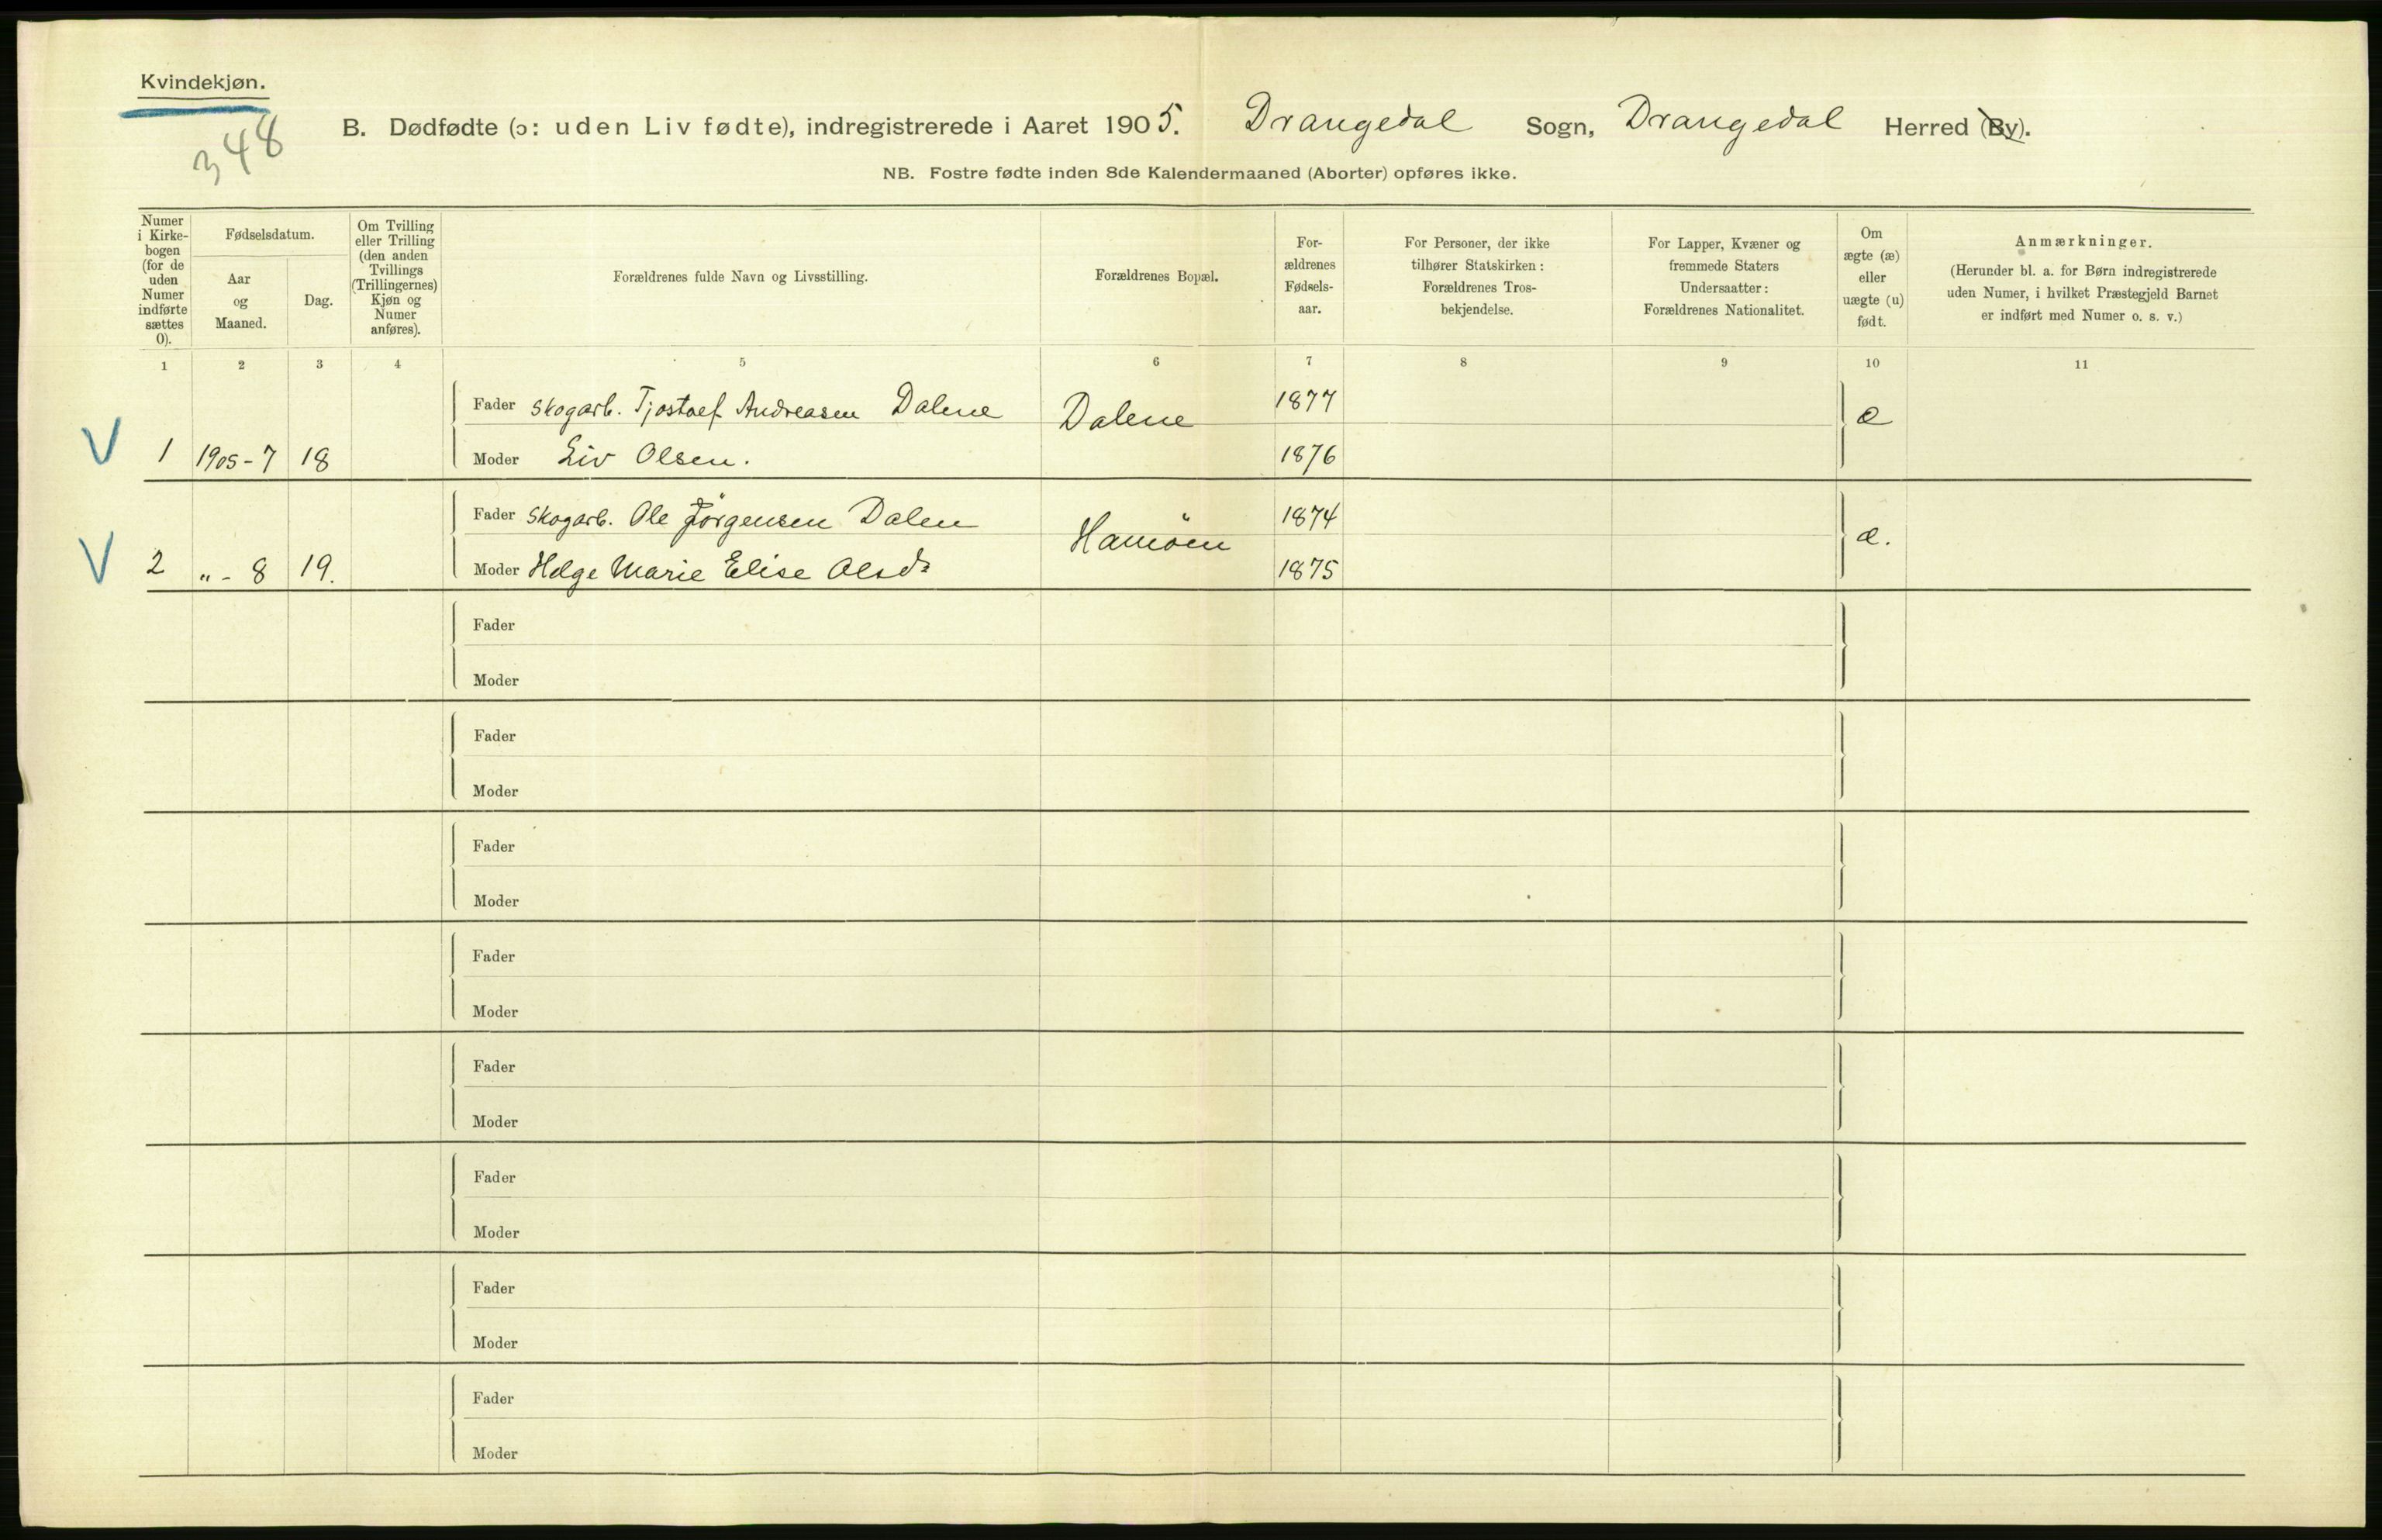 Kvindekjøn.
348
B. Dødfødte (ɔ: uden Liv fødte), indregistrerede i Aaret 1905. Drangedal Sogn, Drangedal Herred (By).
NB. Fostre fødte inden 8de Kalendermaaned (Aborter) opføres ikke.
Numer i Kirke- bogen (for de uden Numer indførte sættes 0).
Fødselsdatum.
Aar og Maaned.
Dag.
Om Tvilling eller Trilling (den anden Tvillings (Trillingernes) Kjøn og Numer anføres).
Forældrenes fulde Navn og Livsstilling.
Forældrenes Bopæl.
For- ældrenes Fødsels- aar.
For Personer, der ikke tilhører Statskirken: Forældrenes Tros- bekjendelse.
For Lapper, Kvæner og fremmede Staters Undersaatter: Forældrenes Nationalitet.
Om ægte (æ) eller uægte (u) født.
Anmærkninger.
(Herunder bl. a. for Børn indregistrerede uden Numer, i hvilket Præstegjeld Barnet er indført med Numer o. s. v.)
1 2 3 4 5 6 7 8 9 10 11
Fader Skogarb. Tjostolf Andreasen Dalene Dalene 1877 æ
V 1 1905-7 18 Moder Liv Olsen. 1876
Fader Skogarb. Ole Jörgensen Dalen 1874 æ.
V 2 „ - 8 19. Moder Helge Marie Elise Olsdr 1875
Fader
Moder
Fader
Moder
Fader
Moder
Fader
Moder
Fader
Moder
Fader
Moder
Fader
Moder
Fader
Moder